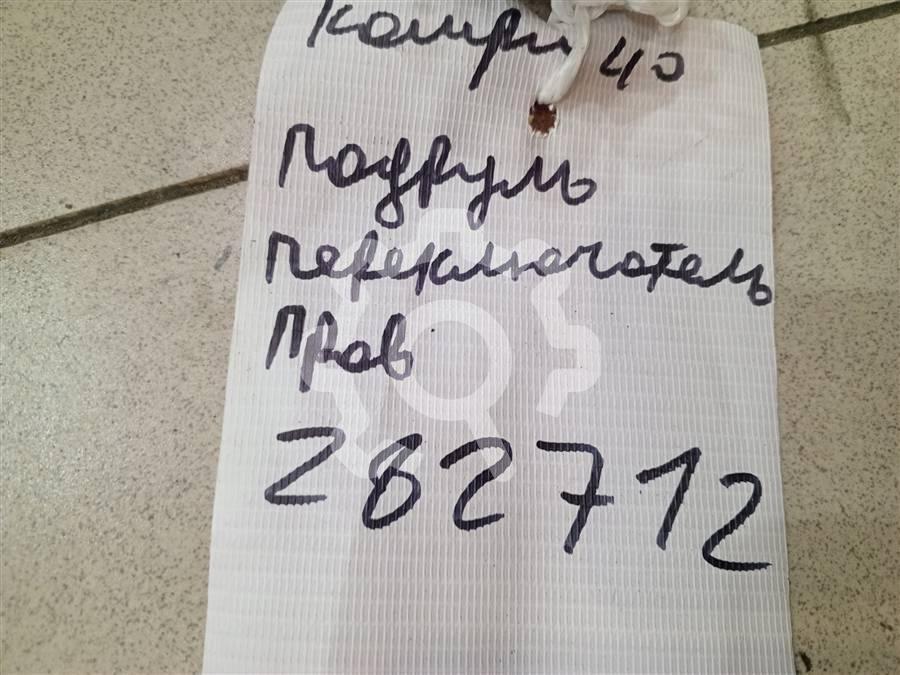 Камри 40
Подруль
переключатель
Прав
282712